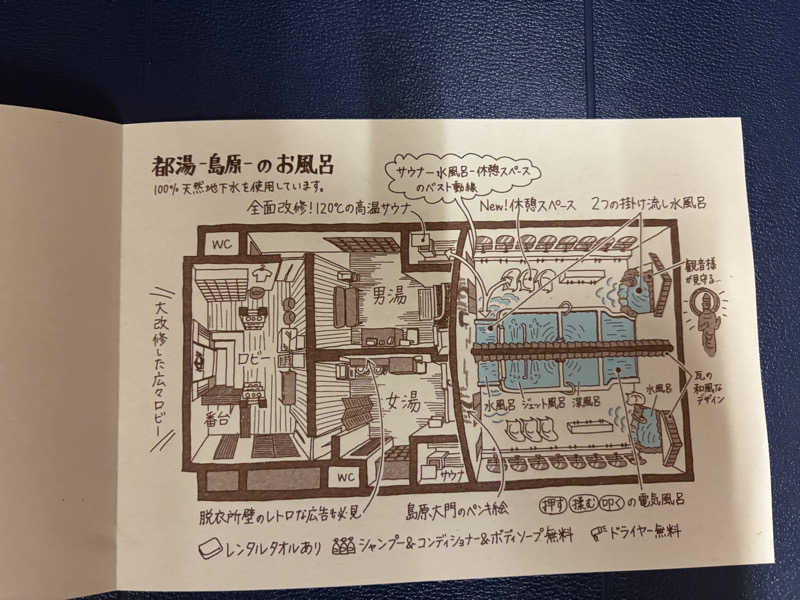 都湯-島原-のお風呂
100%天然地下水を使用しています。
サウナー水風呂-休憩スペース
のベスト動線
全面改修!120℃の高温サウナ
New!休憩スペース
2つの掛け流し水風呂
WC
観音様
が見守る…
男湯
大改修した広々ロビー
ロビー
番台
女湯
水風呂
ジェット風呂
深風呂
水風呂
瓦の
和風な
デザイン
WC
サウナ
脱衣所壁のレトロな広告も必見
島原大門のペンキ絵
押す 揉む 叩く の電気風呂
レンタルタオルあり
シャンプー&コンディショナー&ボディソープ無料
ドライヤー無料